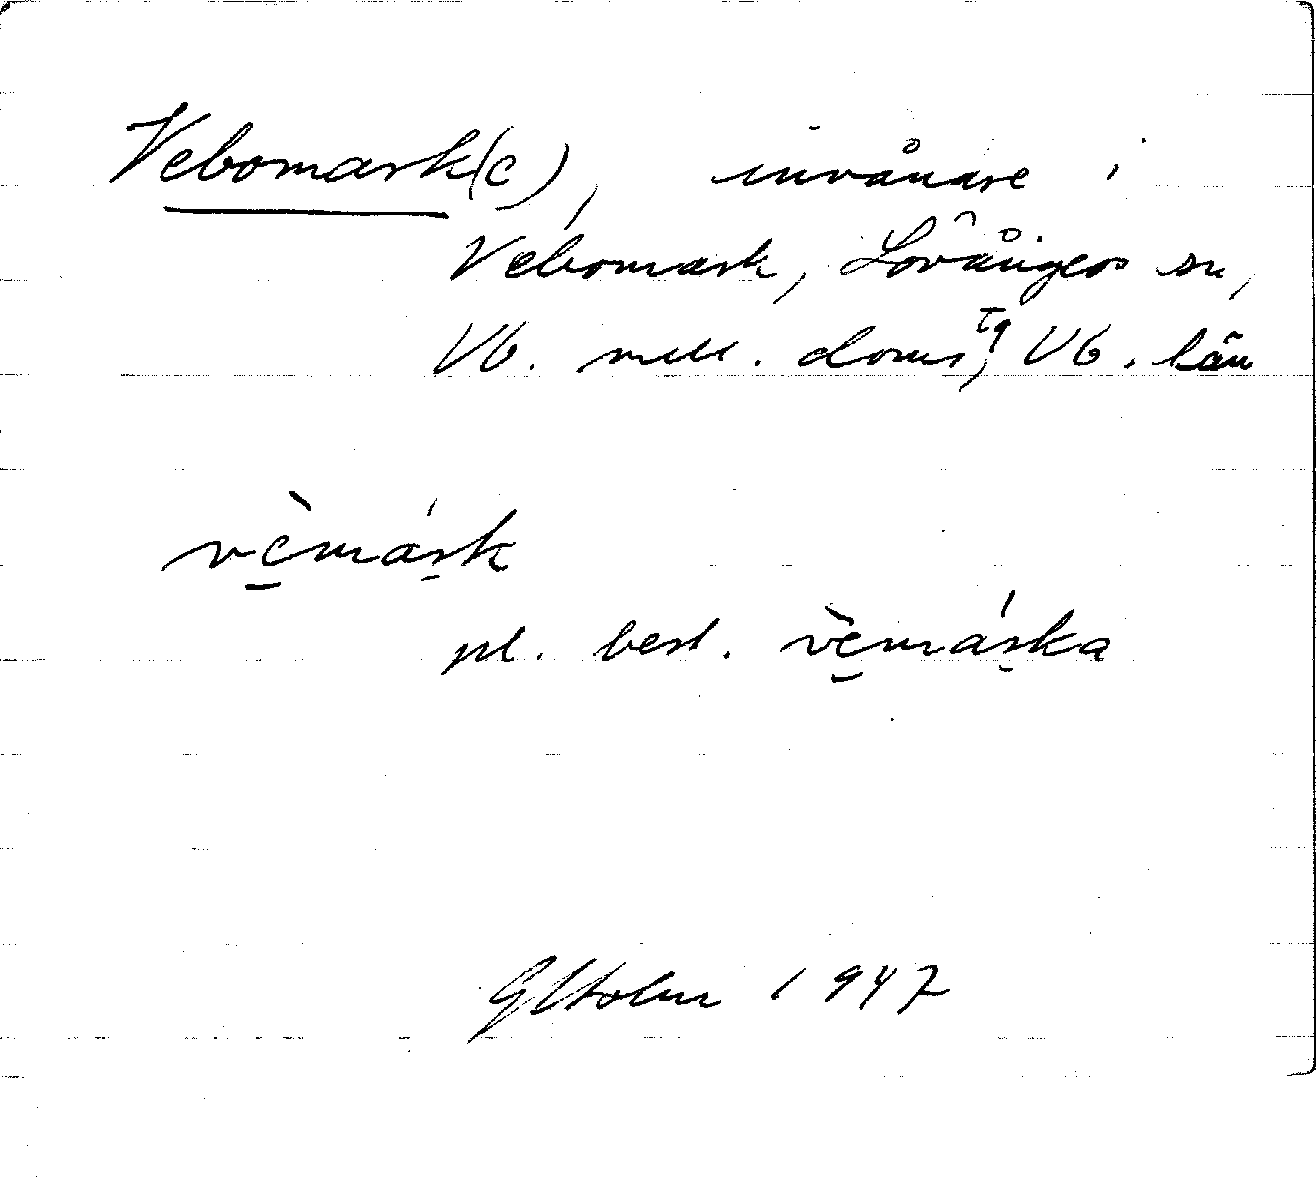 Vebomark(e), invånare i
Vebomark, Lövångers sn,
Vb. mell. doms, Vb. län
vèmársk
pl. best. vèmárska
GHolm 1947